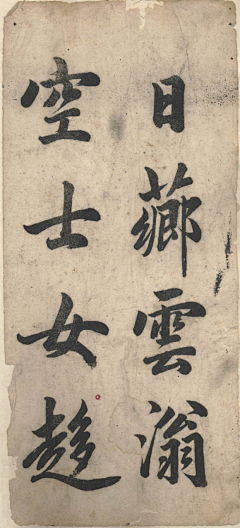 日薌雲滃
空士女趍